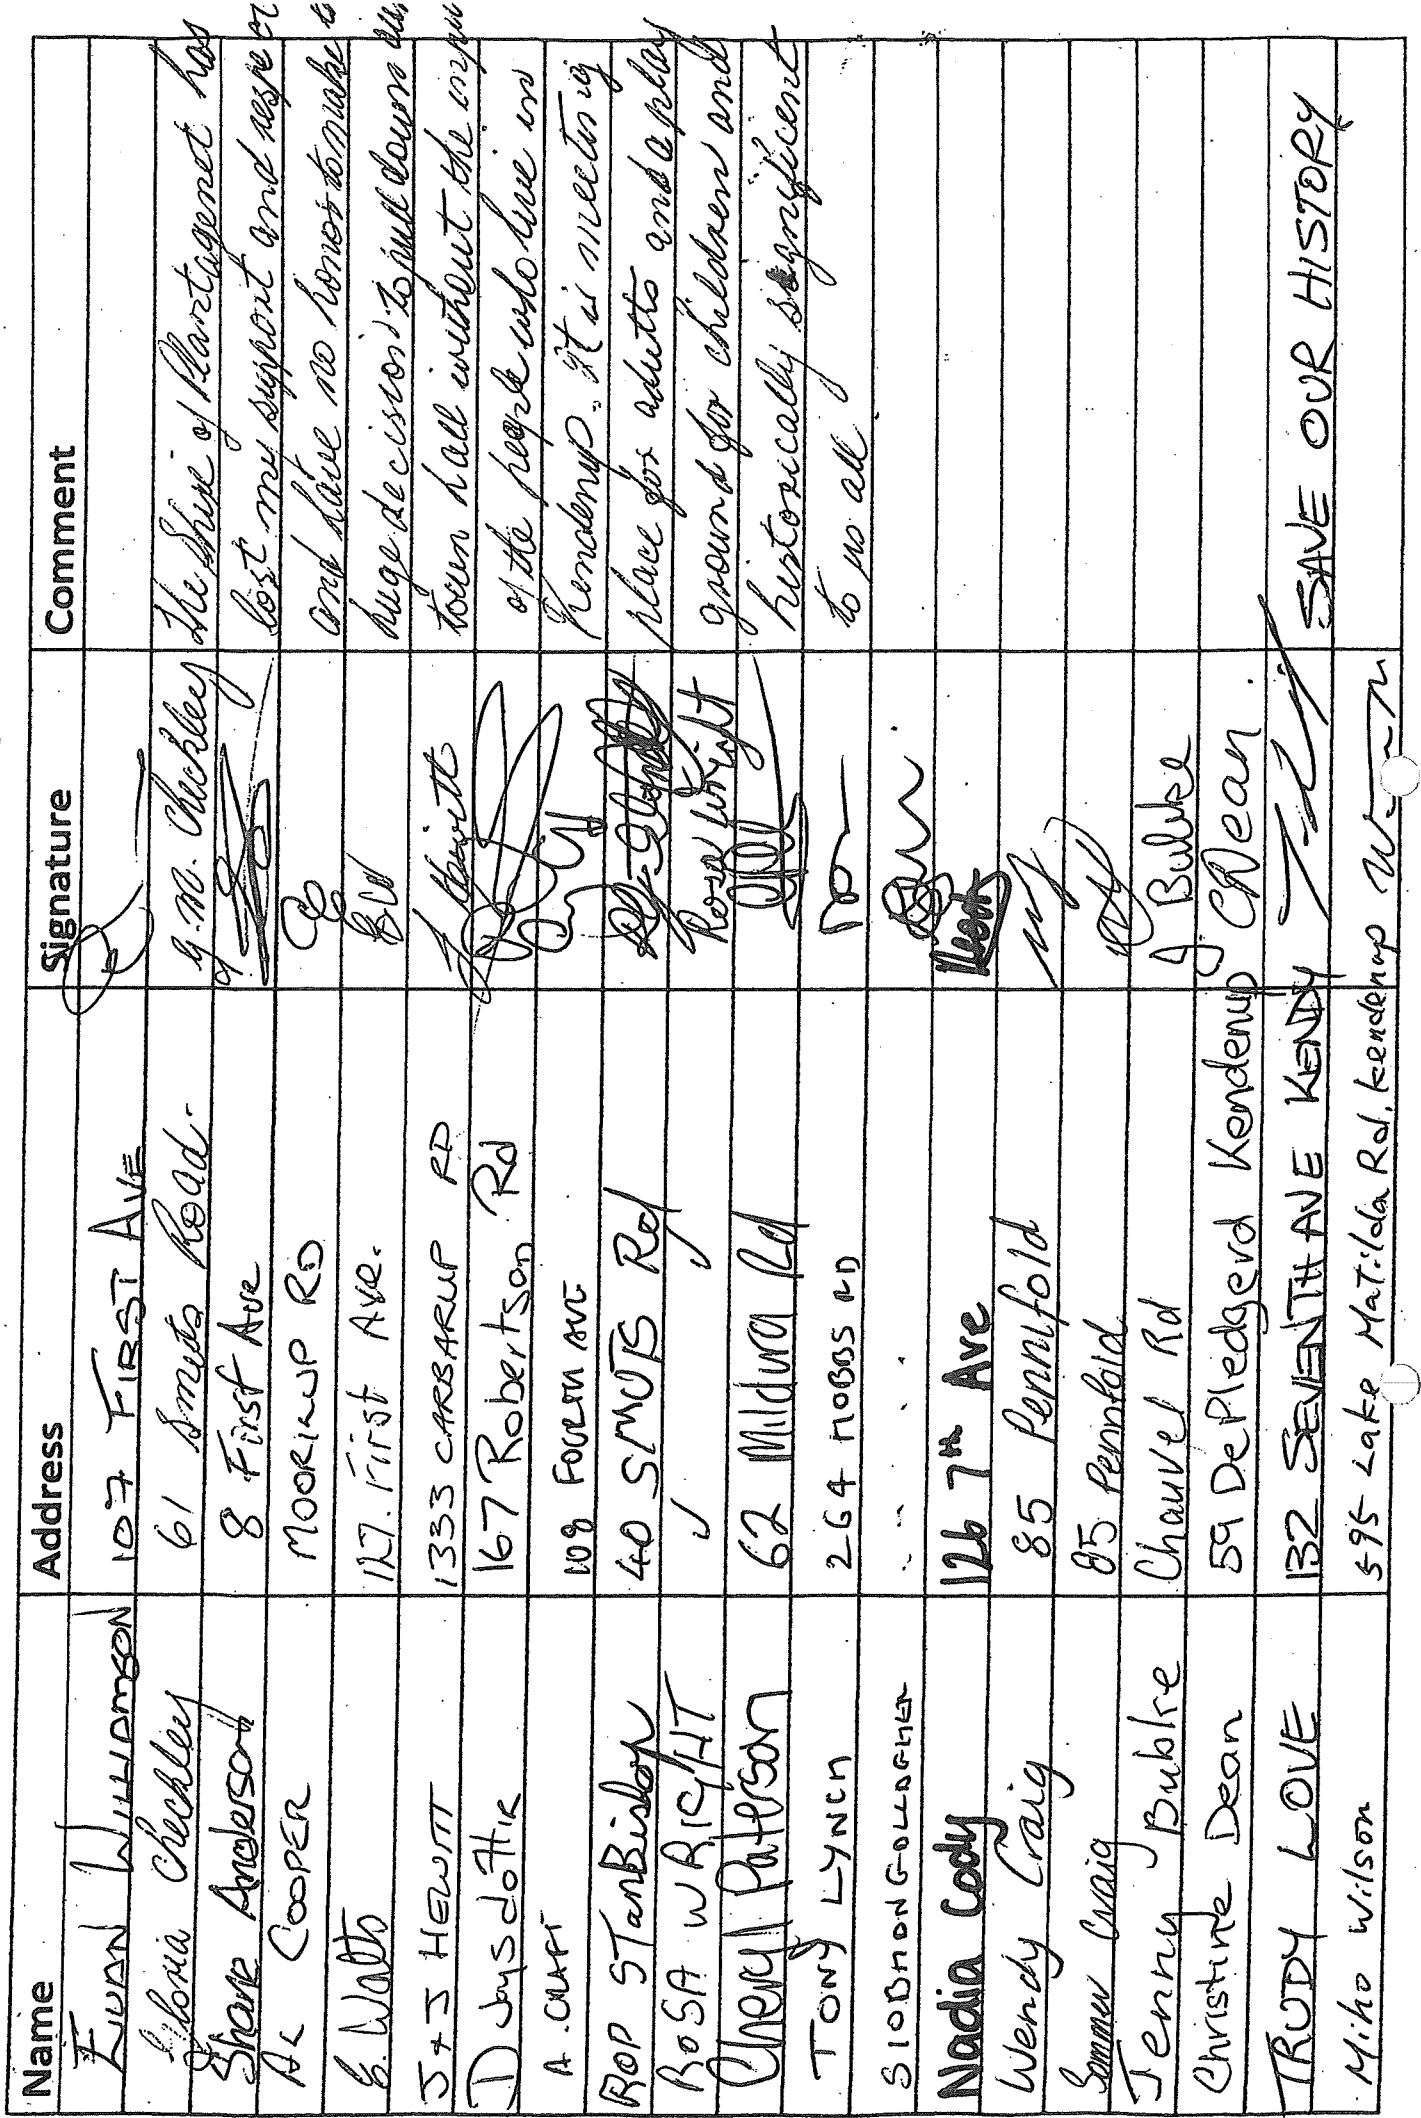 Name Address Signature Comment
EUAN WILLIAMSON 107 FIRST AVE
Gloria Checkley 61 Smuts Road. G.M. Checkley The Shire of Plantagenet has
Shane Anderson 8 First Ave lost my support and respect
AL COOPER MOORILUP RD and have no honor to make
S. Watts 127. First Ave. huge decision to pull down
J + J HEWITT 1333 CARBARUP RD J Hewitt town hall without the input
D Jaysdottir 167 Robertson Rd of the people who live in
A. CRAFT 108 FOURTH AVE Kendenup. It is meeting
ROP STanBishop 40 SMUTS Rd place for adults and a play
ROSA WRIGHT Rosa Wright ground for children and
Cheryl Paterson 62 Mildura Rd historically significent
TONY LYNCH 264 HOBBS RD to us all
SIOBHAN GOLLDGHER
Nadia Cody 126 7th Ave
Wendy Craig 85 Pennifold
Sommer Craig 85 Penifold
Jenny Bublke Chauvel Rd J Bublke
Christine Dean 59 De Pledgerd Kendenup C Dean
TRUDY LOVE 132 SEVENTH AVE KENDY SAVE OUR HISTORY
Miho Wilson 595 Lake Matilda Rd, kendenup